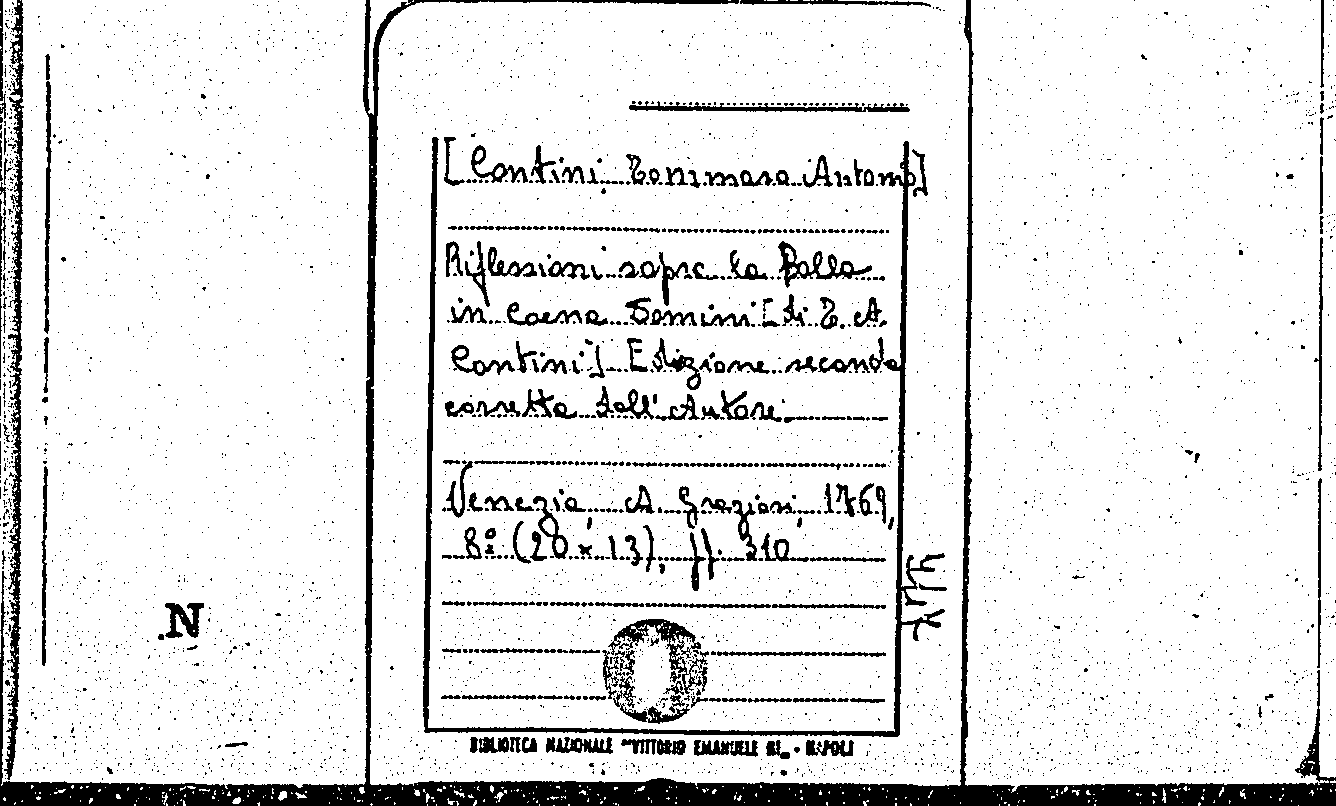 [Contini, Tommaso Antonio]
Riflessioni sopra la Bolla
in Coena Domini [di T. A.
Contini]. Edizione seconda
corretta dall'Autore.
Venezia, A. Graziosi, 1769,
8º (20 x 13), pp. 310
N
BIBLIOTECA NAZIONALE "VITTORIO EMANUELE III" - NAPOLI